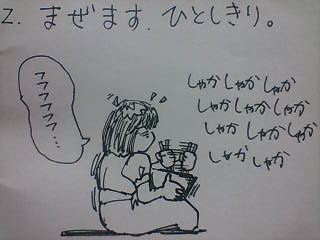 2. まぜます. ひとしきり。
フフフフフフフ…
しゃかしゃかしゃか
しゃかしゃかしゃか
しゃかしゃかしゃか
しゃかしゃか